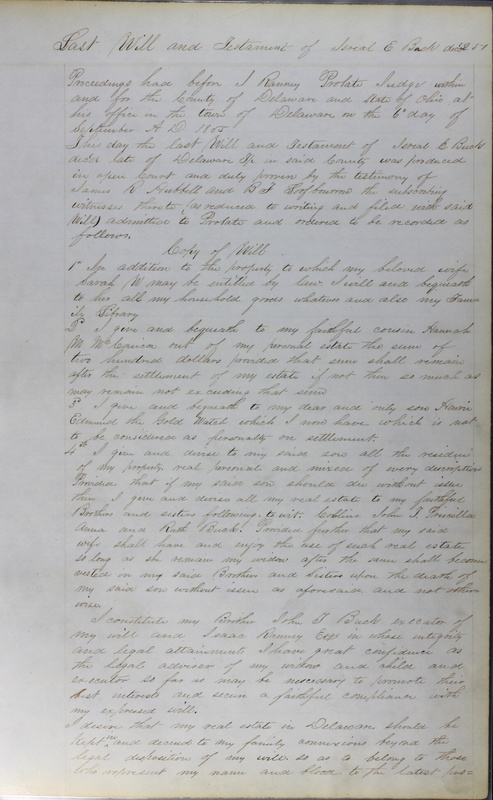 Last Will and Testament of Isreal E Buck decd 251
Proceedings had before I Ranney Probate Judge within
and for the County of Delaware and State of Ohio at
his office in the town of Delaware on the 6th day of
September A D 1805
This day the last Will and Testament of Isreal E Buck
decd late of Delaware Tp in said County was produced
in open Court and duly proven by the testimony of
James R Hubbell and the subscribing
witnesses thereto (as reduced to writing and filed with said
Will) admitted to Probate and ordered to be recorded as
follows.
Copy of Will
1st In addition to the property to which my beloved wife
Sarah W may be intitled by law I will and bequeath
to her all my household goods whatever and also my Fam
ily Library
2d I give and bequeath to my faithful cousin Hannah
M out of my personal estate the sum of
two hundred dollars provided that sum shall remain
after the settlement of my estate if not then so much as
may remain not exceeding that sum
3d I give and bequeath to my dear and only son
Edmund the Gold Watch which I now have which is not
to be considered as personalty on settlement.
4th I give and devise to my said son all the residue
of my property real personal and mixed of every description
Provided that if my said son should die without issue
then I give and devise all my real estate to my faithful
Brothers and sisters following. to wit. John T. Priscilla
Anna and Ruth Buck. Provided further that my said
wife shall have and enjoy the use of such real estate
so long as she remain my widow after the same shall become
vested in my said Brothers and Sisters upon the death of
my said son without issue as aforesaid and not other
wise.
I constitute my Brother John T Buck executor of
my will and Isaac Ranney Esq in whose integrity
and legal attainments I have great confidence as
the legal adviser of my widow and child and
executor so far as may be nescessary to promote their
best interests and secure a faithful compliance with
my expressed will.
I desire that my real estate in Delaware should be
kept and decend to my family connexions beyond the
legal disposition of my will so as to belong to those
who represent my name and blood to the latest pos=